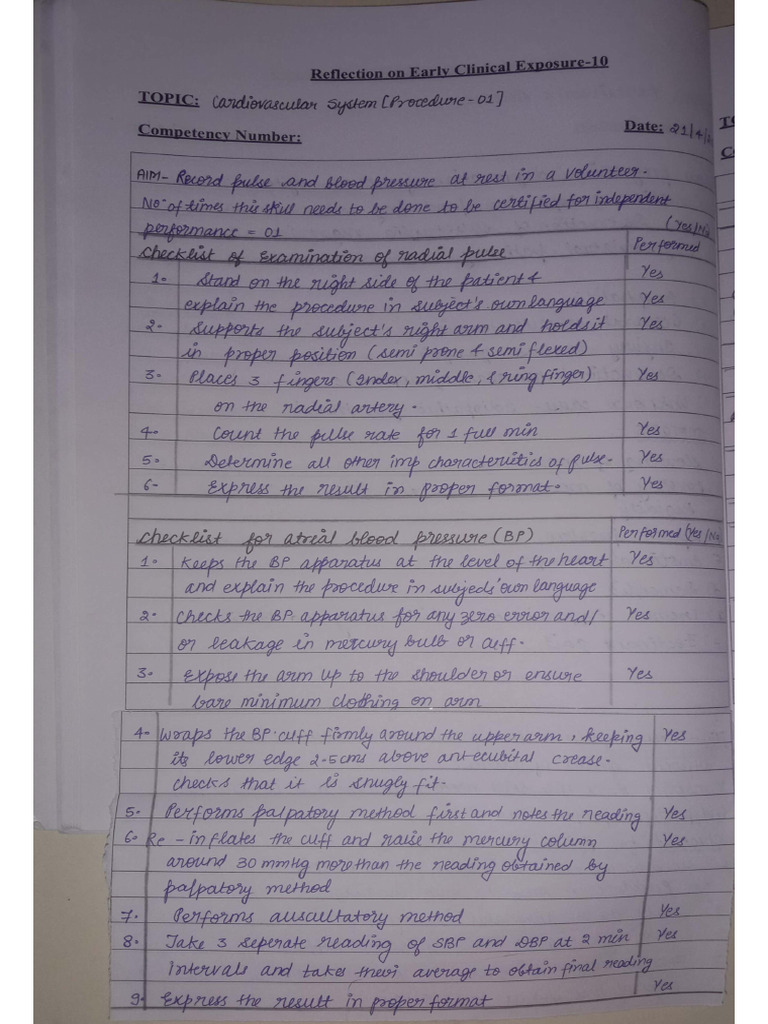 Reflection on Early Clinical Exposure-10
TOPIC: Cardiovascular System [Procedure-01]
Competency Number: Date: 21/4/
AIM- Record pulse and blood pressure at rest in a volunteer.
No. of times this skill needs to be done to be certified for independent
performance = 01 (Yes/No
Checklist of Examination of radial pulse Performed
1- Stand on the right side of the patient & Yes
explain the procedure in subject's own language Yes
2- Supports the subject's right arm and holds it Yes
in proper position (semi prone & semi flexed)
3- Places 3 fingers (Index, middle, & ring finger) Yes
on the radial artery.
4- Count the pulse rate for 1 full min Yes
5- Determine all other imp characteristics of pulse. Yes
6- Express the result in proper format. Yes
Checklist for atrial blood pressure (BP) Performed (Yes/No
1- Keeps the BP apparatus at the level of the heart Yes
and explain the procedure in subjects' own language
2- Checks the BP apparatus for any zero error and/ Yes
or leakage in mercury bulb or cuff.
3- Expose the arm up to the shoulder or ensure Yes
bare minimum clothing on arm
4- Wraps the BP cuff firmly around the upper arm, keeping Yes
its lower edge 2.5cms above antecubital crease.
checks that it is snugly fit.
5- Performs palpatory method first and notes the reading Yes
6- Re-inflates the cuff and raise the mercury column Yes
around 30 mmHg more than the reading obtained by
palpatory method
7- Performs auscultatory method Yes
8- Take 3 seperate reading of SBP and DBP at 2 min Yes
intervals and takes their average to obtain final reading
9- Express the result in proper format Yes